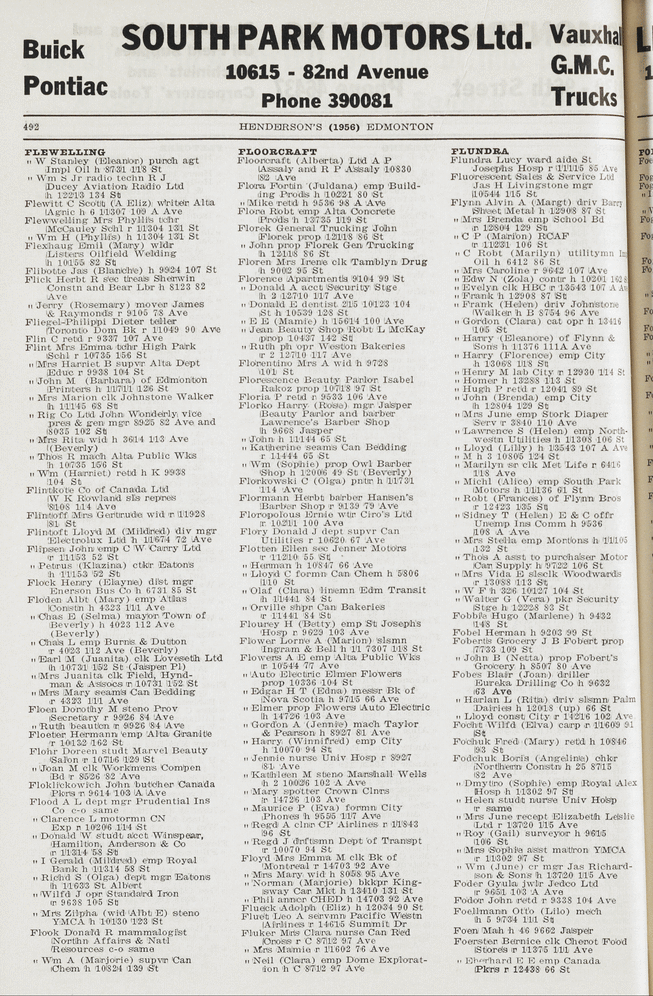 Buick
Pontiac
SOUTH PARK MOTORS Ltd.
10615 - 82nd Avenue
Phone 390081
Vauxhal
G.M.C.
Trucks
492
HENDERSON'S (1956) EDMONTON
FLEWELLING
" W Stanley (Eleanor) purch agt
Impl Oil h 8731 118 St
" Wm S Jr radio techn R J
Ducey Aviation Radio Ltd
h 12213 134 St
Flewitt C Scott (A Eliz) writer Alta
Agric h 6 11307 109 Ave
Flewwelling Mrs Phyllis tchr
McCauley Schl r 11304 131 St
" Wm H (Phyllis) h 11304 131 St
Flexhaug Emil (Mary) wldr
Listers Oilfield Welding
h 10155 82 St
Flibotte Jas (Blanche) h 9924 107 St
Flick Herbt R sec treas Sherwin
Constn and Bear Lbr h 8123 82
Ave
" Jerry (Rosemary) mover James
& Raymonds r 9105 78 Ave
Fliegel-Philippi Dieter teller
Toronto Dom Bk r 11049 90 Ave
Flin C retd r 9337 107 Ave
Flint Mrs Emma tchr High Park
Schl r 10735 156 St
" Mrs Harriet B supvr Alta Dept
Educ r 9938 104 St
" John M (Barbara) of Edmonton
Printers h 11711 126 St
" Mrs Marion clk Johnstone Walker
h 11145 68 St
" Rig Co Ltd John Wonderly vice
pres & gen mgr 8925 82 Ave and
8035 102 St
" Mrs Rita wid h 3614 113 Ave
(Beverly)
" Thos R mach Alta Public Wks
h 10735 156 St
" Wm (Harriet) retd h K 9938
104 St
Flintkote Co of Canada Ltd
W K Rowland sls repres
8108 114 Ave
Flintoff Mrs Gertrude wid r 11928
81 St
Flintoft Lloyd M (Mildred) div mgr
Electrolux Ltd h 11674 72 Ave
Flipsen John emp C W Carry Ltd
r 11153 52 St
" Petrus (Klazina) ctkr Eaton's
h 11153 52 St
Flock Henry (Elayne) dist mgr
Enerson Bus Co h 6731 85 St
Floden Albt (Mary) emp Atlas
Constn h 4323 111 Ave
" Chas E (Selma) mayor Town of
Beverly) h 4023 112 Ave
(Beverly)
" Chas L emp Burns & Dutton
r 4023 112 Ave (Beverly)
" Earl M (Juanita) clk Loveseth Ltd
h 10731 152 St (Jasper Pl)
" Mrs Juanita clk Field, Hynd-
man & Assocs r 10731 152 St
" Mrs Mary seams Can Bedding
r 4323 111 Ave
Floen Dorothy M steno Prov
Secretary r 9926 84 Ave
" Ruth beautcn r 9926 84 Ave
Floeter Hermann emp Alta Granite
r 10132 162 St
Flohr Doreen studt Marvel Beauty
Salon r 10716 129 St
" Joan M clk Workmens Compen
Bd r 8526 82 Ave
Floklickowich John butcher Canada
Pkrs r 9614 103 A Ave
Flood A L dept mgr Prudential Ins
Co c-o same
" Clarence L motormn CN
Exp r 10206 114 St
" Donald W studt acct Winspear,
Hamilton, Anderson & Co
r 11314 58 St
" I Gerald (Mildred) emp Royal
Bank h 11314 58 St
" Richd S (Olga) dept mgr Eatons
h 11633 St Albert
" Wilfd J opr Standard Iron
r 9638 105 St
" Mrs Zilpha (wid Albt E) steno
YMCA h 10130 123 St
Flook Donald R mammalogist
Northn Affairs & Natl
Resources c-o same
" Wm A (Marjorie) supvr Can
Chem h 10824 139 St
FLOORCRAFT
Floorcraft (Alberta) Ltd A P
Assaly and R P Assaly 10830
82 Ave
Flora Fortin (Juldana) emp Build-
ing Prods h 10221 80 St
" Mike retd h 9536 98 A Ave
Flore Robt emp Alta Concrete
Prods h 13735 119 St
Florek General Trucking John
Florek prop 12118 86 St
" John prop Florek Gen Trucking
h 12118 86 St
Floren Mrs Irene clk Tamblyn Drug
h 9002 95 St
Florence Apartments 9104 99 St
" Donald A acct Security Stge
h 2 12710 117 Ave
" Donald E dentist 215 10123 104
St h 10539 128 St
" E E (Mamie) h 15614 100 Ave
" Jean Beauty Shop Robt L McKay
prop 10437 142 St
" Ruth ph opr Weston Bakeries
r 2 12710 117 Ave
Florentino Mrs A wid h 9728
101 St
Florescence Beauty Parlor Isabel
Rakoz prop 10718 97 St
Floria P retd r 9533 106 Ave
Florko Harry (Rose) mgr Jasper
Beauty Parlor and barber
Lawrence's Barber Shop
h 9668 Jasper
" John h 11144 65 St
" Katherine seams Can Bedding
r 11444 65 St
" Wm (Sophie) prop Owl Barber
Shop h 12006 49 St (Beverly)
Florkowski C (Olga) pntr h 11731
114 Ave
Flormann Herbt barber Hansen's
Barber Shop r 9139 79 Ave
Floropolous Ernie wtr Ciro's Ltd
r 10211 100 Ave
Flory Donald J dept supvr Can
Utilities r 10620 67 Ave
Flotten Ellen sec Jenner Motors
r 11210 55 St
" Herman h 10847 66 Ave
" Lloyd C formn Can Chem h 5806
110 St
" Olaf (Clara) linemn Edm Transit
h 11441 84 St
" Orville shpr Can Bakeries
r 11441 84 St
Flourey H (Betty) emp St Joseph's
Hosp r 9629 103 Ave
Flower Lorne A (Marion) slsmn
Ingram & Bell h 11 7307 118 St
Flowers A E emp Alta Public Wks
r 10544 77 Ave
" Auto Electric Elmer Flowers
prop 10336 104 St
" Edgar H T (Edna) messr Bk of
Nova Scotia h 9715 66 Ave
" Elmer prop Flowers Auto Electric
h 14726 103 Ave
" Gordon A (Jennie) mach Taylor
& Pearson h 8927 81 Ave
" Harry (Winnifred) emp City
h 10070 94 St
" Jennie nurse Univ Hosp r 8927
81 Ave
" Kathleen M steno Marshall Wells
h 2 10026 102 A Ave
" Mary spotter Crown Clnrs
r 14726 103 Ave
" Maurice P (Eva) formn City
Phones h 9535 117 Ave
" Regd A clnr CP Airlines r 11843
96 St
" Regd J draftsmn Dept of Transpt
r 10070 94 St
Floyd Mrs Emma M clk Bk of
Montreal r 14703 92 Ave
" Mrs Mary wid h 8058 95 Ave
" Norman (Marjorie) bkkpr King-
sway Car Mkt h 13410 131 St
" Phil annor CHED h 14703 92 Ave
Flueck Adolph (Eliz) h 12034 90 St
Fluet Leo A servmn Pacific Westn
Airlines r 14615 Summit Dr
Fluker Mrs Clara nurse Can Red
Cross r C 8712 97 Ave
" Mrs Mamie r 11602 76 Ave
" Neil (Clara) emp Dome Explorat-
ion h C 8712 97 Ave
FLUNDRA
Flundra Lucy ward aide St
Josephs Hosp r 11115 85 Ave
Fluorescent Sales & Service Ltd
Jas H Livingstone mgr
10544 115 St
Flynn Alvin A (Margt) driv Barry
Sheet Metal h 12908 87 St
" Mrs Brenda emp School Bd
r 12804 129 St
" C P (Marion) RCAF
r 11231 106 St
" C Robt (Marilyn) utilitymn Im
Oil h 6412 86 St
" Mrs Caroline r 9642 107 Ave
" Edw N (Zola) contr h 10201 162
" Evelyn clk HBC r 13543 107 A
" Frank h 12908 87 St
" Frank (Helen) driv Johnstone
Walker h B 8754 96 Ave
" Gordon (Clara) cat opr h 13416
105 St
" Harry (Eleanore) of Flynn &
Sons h 11376 111A Ave
" Harry (Florence) emp City
h 13068 118 St
" Henry M lab City r 12930 114 St
" Homer h 13288 113 St
" Hugh P retd r 12041 89 St
" John (Brenda) emp City
h 12804 129 St
" Mrs June emp Stork Diaper
Serv r 3840 110 Ave
" Lawrence S (Helen) emp North-
westn Utilities h 11308 106 St
" Lloyd (Lilly) h 13543 107 A Ave
" M h 3 10805 124 St
" Marilyn sr clk Met Life r 6416
118 Ave
" Michl (Alice) emp South Park
Motors h 11136 61 St
" Robt (Frances) of Flynn Bros
r 12423 135 St
" Sidney T (Helen) E & C offr
Unemp Ins Comm h 9536
108 A Ave
" Mrs Stella emp Mortons h 11105
132 St
" Thos A asst to purchaser Motor
Car Supply h 9722 106 St
" Mrs Vida E slsclk Woodwards
r 13088 113 St
" W F h 326 10127 104 St
" Walter G (Vera) pkr Security
Stge h 12228 83 St
Fobbie Hugo (Marlene) h 9432
148 St
Fobel Herman h 9203 99 St
Foberts Grocery J B Fobert prop
7733 109 St
" John B (Netta) prop Fobert's
Grocery h 8507 80 Ave
Fobes Blair (Joan) driller
Eureka Drilling Co h 9632
63 Ave
" Harlan L (Rita) driv slsmn Palm
Dairies h 12018 (up) 66 St
" Lloyd const City r 14216 102 Ave
Focht Wilfd (Elva) carp r 11609 91
St
Fochuk Fred (Mary) retd h 10846
93 St
Fodchuk Boris (Angelina) chkr
Northern Constn h 25 8715
82 Ave
" Dmytro (Sophie) emp Royal Alex
Hosp h 11302 97 St
" Helen studt nurse Univ Hosp
r same
" Mrs June recept Elizabeth Leslie
Ltd r 13720 115 Ave
" Roy (Gail) surveyor h 9615
106 St
" Mrs Sophie asst matron YMCA
r 11302 97 St
" Wm (June) cr mgr Jas Richard-
son & Sons h 13720 115 Ave
Foder Gyula jwlr Jedco Ltd
r 9651 103 A Ave
Fodor John retd r 9338 104 Ave
Foellmann Otto (Lilo) mech
h 5 9734 111 St
Foen Mah h 46 9662 Jasper
Foerster Bernice clk Cherot Food
Stores r 11375 111 Ave
" Eberhard E E emp Canada
Pkrs r 12438 66 St